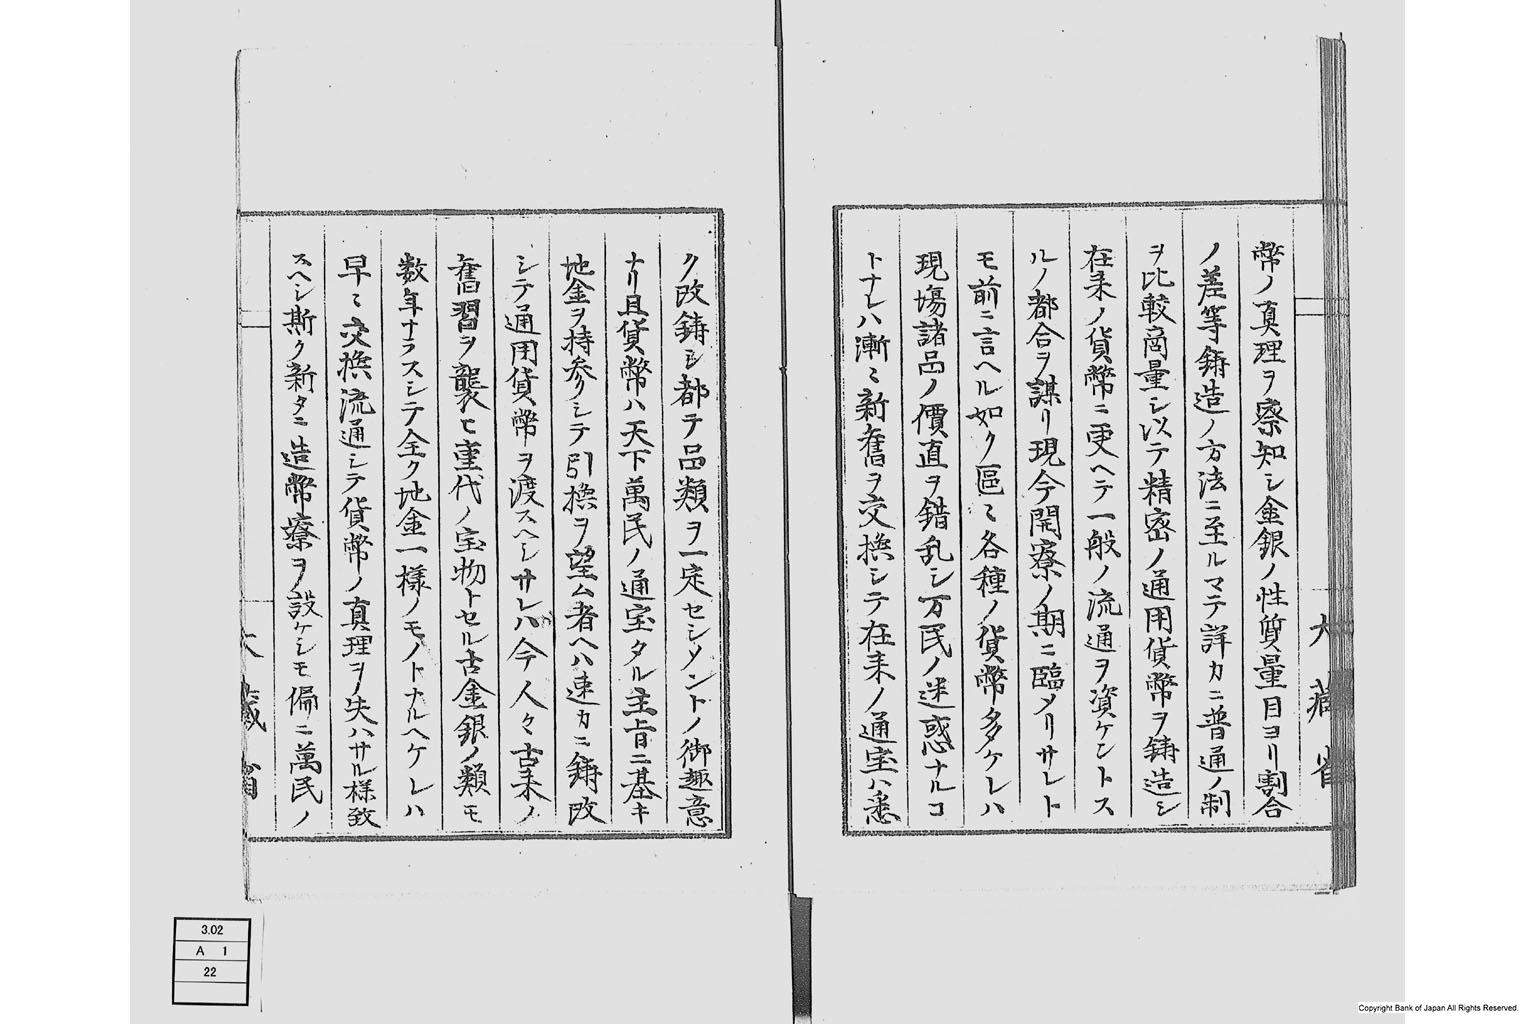 幣ノ真理ヲ察知シ金銀ノ性質量目ヨリ割合
ノ差等鋳造ノ方法ニ至ルマテ詳カニ普通ノ制
ヲ比較商量シ以テ精密ノ通用貨幣ヲ鋳造シ
在来ノ貨幣ニ更ヘテ一般ノ流通ヲ資ケントス
ルノ都合ヲ謀リ現今開寮ノ期ニ臨メリサレト
モ前ニ言ヘル如ク區々各種ノ貨幣多ケレハ
現場諸品ノ價直ヲ錯乱シ万民ノ迷惑ナルコ
トナレハ漸々新舊ヲ交換シテ在来ノ通宝ハ悉
大藏省
ク改鋳シ都テ品類ヲ一定セシメントノ御趣意
ナリ且貨幣ハ天下萬民ノ通宝タル主旨ニ基キ
地金ヲ持参シテ引換ヲ望ム者ヘハ速カニ鋳改
シテ通用貨幣ヲ渡スヘシサレハ今人々古来ノ
舊習ヲ襲ヒ重代ノ宝物トセル古金銀ノ類モ
数年ナラスシテ全ク地金一様ノモノトナルヘケレハ
早々交換流通シテ貨幣ノ真理ヲ失ハサル様致
スヘシ斯ク新タニ造幣寮ヲ設ケシモ偏ニ萬民ノ
大藏省
3.02
A 1
22
Copyright Bank of Japan All Rights Reserved.